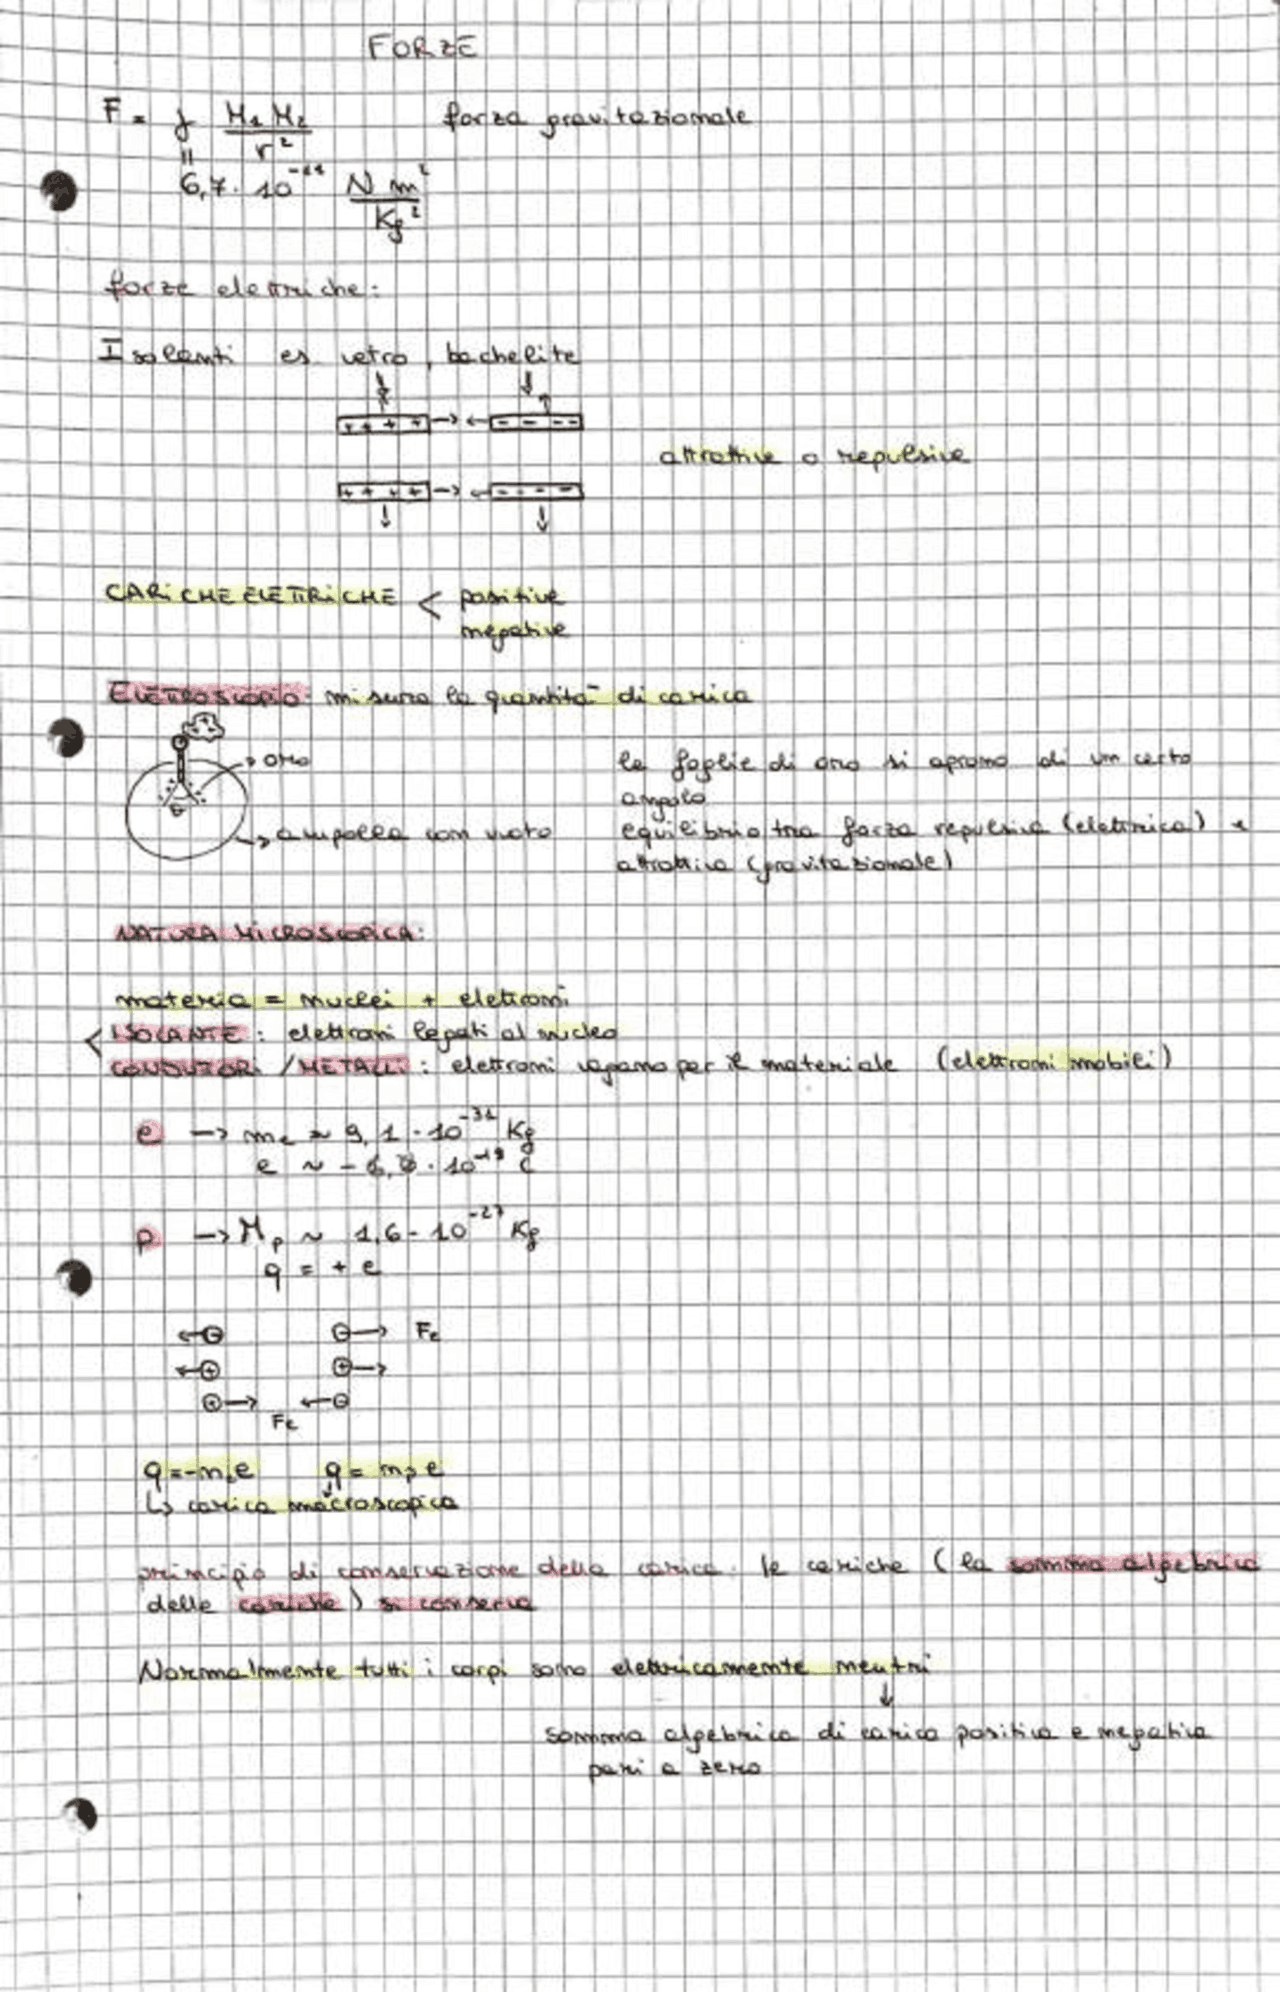 FORZE
F = γ M₁ M₂ / r² forza gravitazionale
"
6,7 · 10⁻¹¹ N m² / Kg²
forze elettriche:
Isolanti es vetro, bachelite
+ + + + → ← - - - -
attrattive o repulsive
+ + + + → ← - - - -
CARICHE ELETTRICHE < positive
negative
ELETTROSCOPIO: misura la quantità di carica
→ oro
le foglie di oro si aprono di un certo
angolo
→ ampolla con vuoto
equilibrio tra forza repulsiva (elettrica) e
attrattiva (gravitazionale)
NATURA MICROSCOPICA:
materia = nuclei + elettroni
< ISOLANTE: elettroni legati al nucleo
CONDUTTORI / METALLI: elettroni vagano per il materiale (elettroni mobili)
e → mₑ ≈ 9,1 · 10⁻³¹ Kg
e ~ - · 10⁻¹⁹ C
p → Mₚ ~ 1,6 · 10⁻²⁷ Kg
q = + e
← ⊖ ⊖ → Fe
← ⊕ ⊕ →
⊕ → ← ⊖
Fe
q = - nₑe q = nₚ e
↳ carica macroscopica
principio di conservazione della carica: le cariche (la somma algebrica
delle cariche) si conserva
Normalmente tutti i corpi sono elettricamente neutri
↓
somma algebrica di carica positiva e negativa
pari a zero